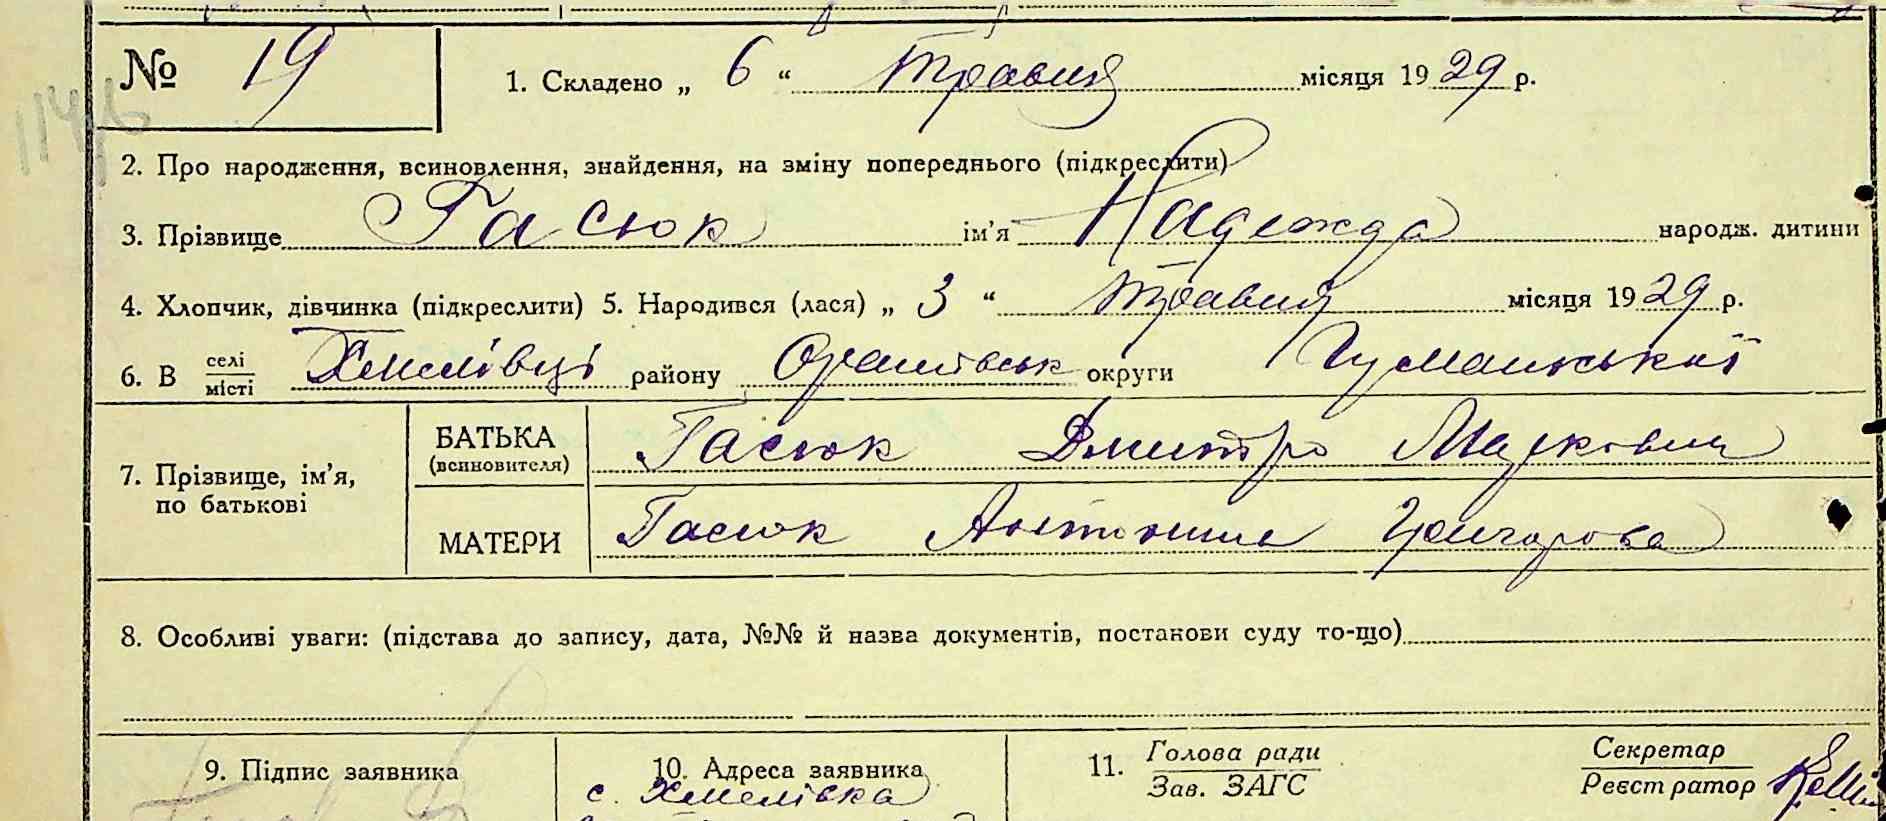 № 19
1. Складено „ 6 “ травня місяця 1929 р.
2. Про народження, всиновлення, знайдення, на зміну попереднього (підкреслити)
3. Прізвище Гасюк ім’я Надежда народж. дитини
4. Хлопчик, дівчинка (підкреслити) 5. Народився (лася) „ 3 “ травня місяця 1929 р.
6. В селі/місті Хмелівці району Оратівськ округи Гуманської
7. Прізвище, ім’я, по батькові
БАТЬКА (всиновителя) Гасюк Дмитро Маркович
МАТЕРИ Гасюк Антонина Григорова
8. Особливі уваги: (підстава до запису, дата, №№ й назва документів, постанови суду то-що)
9. Підпис заявника
10. Адреса заявника
с. Хмелівка
11. Голова ради
Зав. ЗАГС
Секретар
Реєстратор